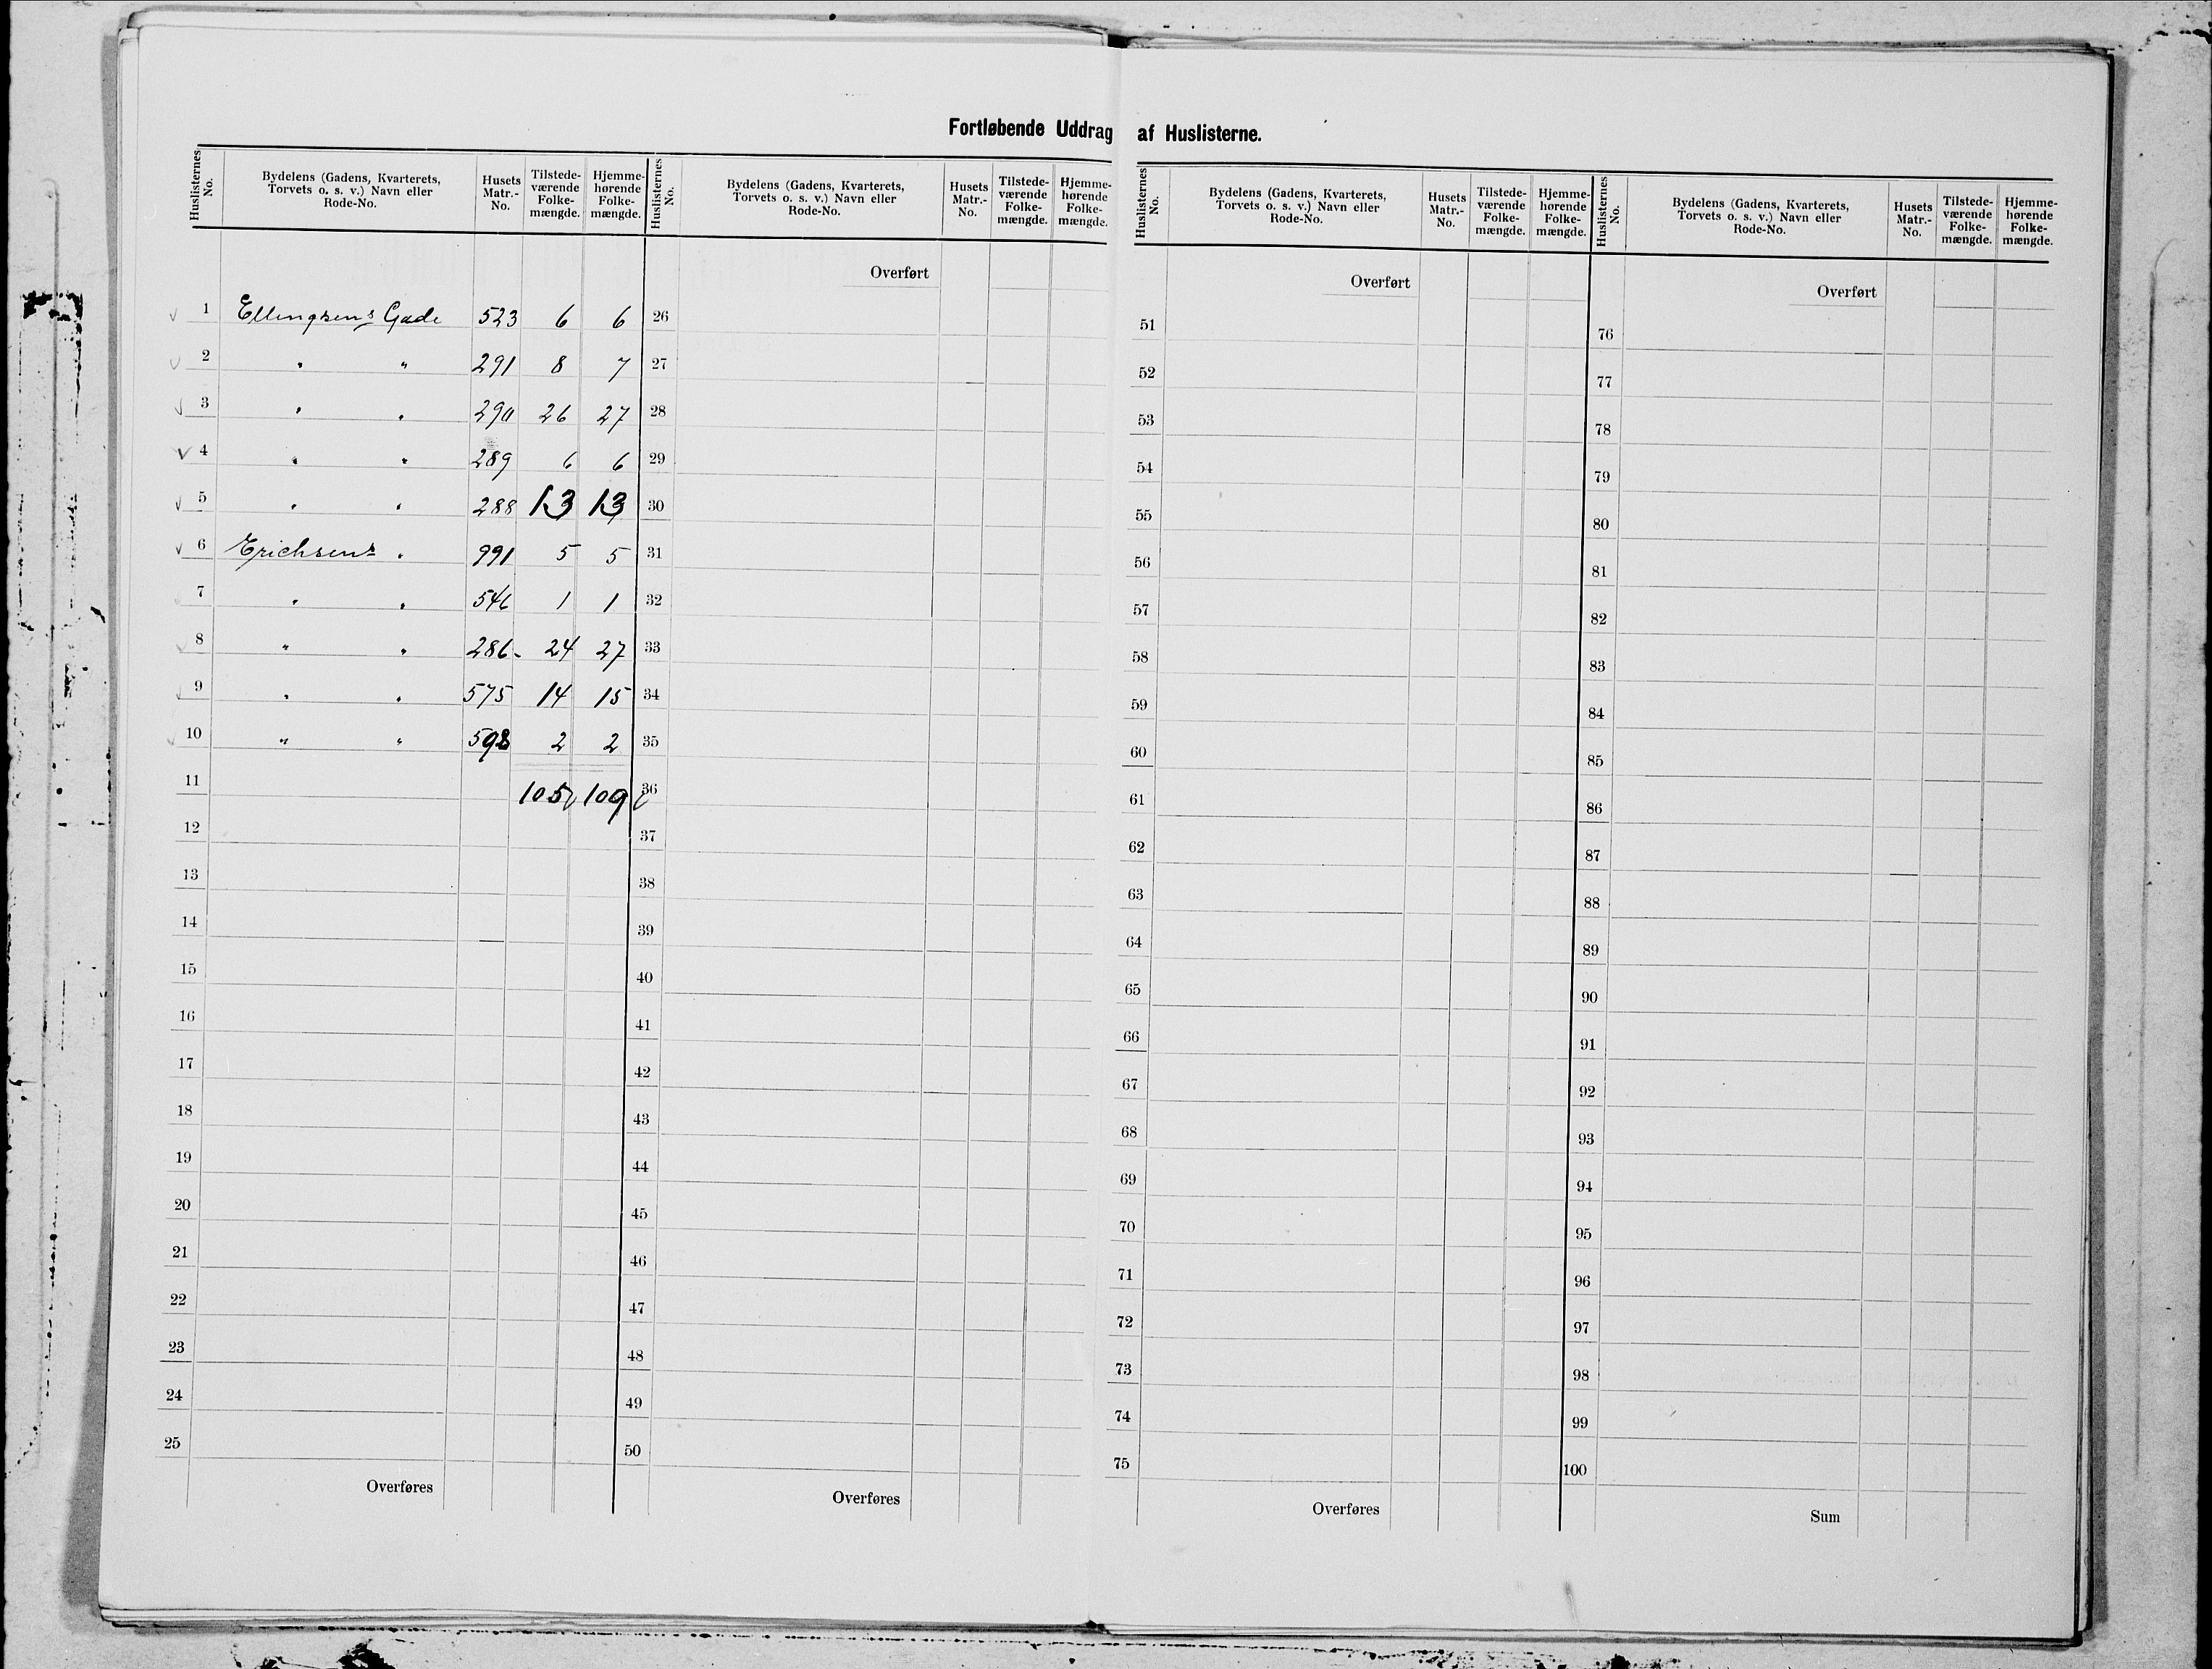 Fortløbende Uddrag af Huslisterne.
Huslisternes No. Bydelens (Gadens, Kvarterets, Torvets o. s. v.) Navn eller Rode-No. Husets Matr.-No. Tilstede-værende Folke-mængde. Hjemme-hørende Folke-mængde.
1 Ellingsens Gade 523 6 6
2 " " 291 8 7
3 " " 290 26 27
4 " " 289 6 6
5 " " 288 13 13
6 Erichsens " 991 5 5
7 " " 546 1 1
8 " " 286 - 24 27
9 " " 575 14 15
10 " " 598 2 2
11 105 109
12
13
14
15
16
17
18
19
20
21
22
23
24
25
Overføres
Huslisternes No. Bydelens (Gadens, Kvarterets, Torvets o. s. v.) Navn eller Rode-No. Husets Matr.-No. Tilstede-værende Folke-mængde. Hjemme-hørende Folke-mængde.
Overført
26
27
28
29
30
31
32
33
34
35
36
37
38
39
40
41
42
43
44
45
46
47
48
49
50
Overføres
Huslisternes No. Bydelens (Gadens, Kvarterets, Torvets o. s. v.) Navn eller Rode-No. Husets Matr.-No. Tilstede-værende Folke-mængde. Hjemme-hørende Folke-mængde.
Overført
51
52
53
54
55
56
57
58
59
60
61
62
63
64
65
66
67
68
69
70
71
72
73
74
75
Overføres
Huslisternes No. Bydelens (Gadens, Kvarterets, Torvets o. s. v.) Navn eller Rode-No. Husets Matr.-No. Tilstede-værende Folke-mængde. Hjemme-hørende Folke-mængde.
Overført
76
77
78
79
80
81
82
83
84
85
86
87
88
89
90
91
92
93
94
95
96
97
98
99
100
Sum